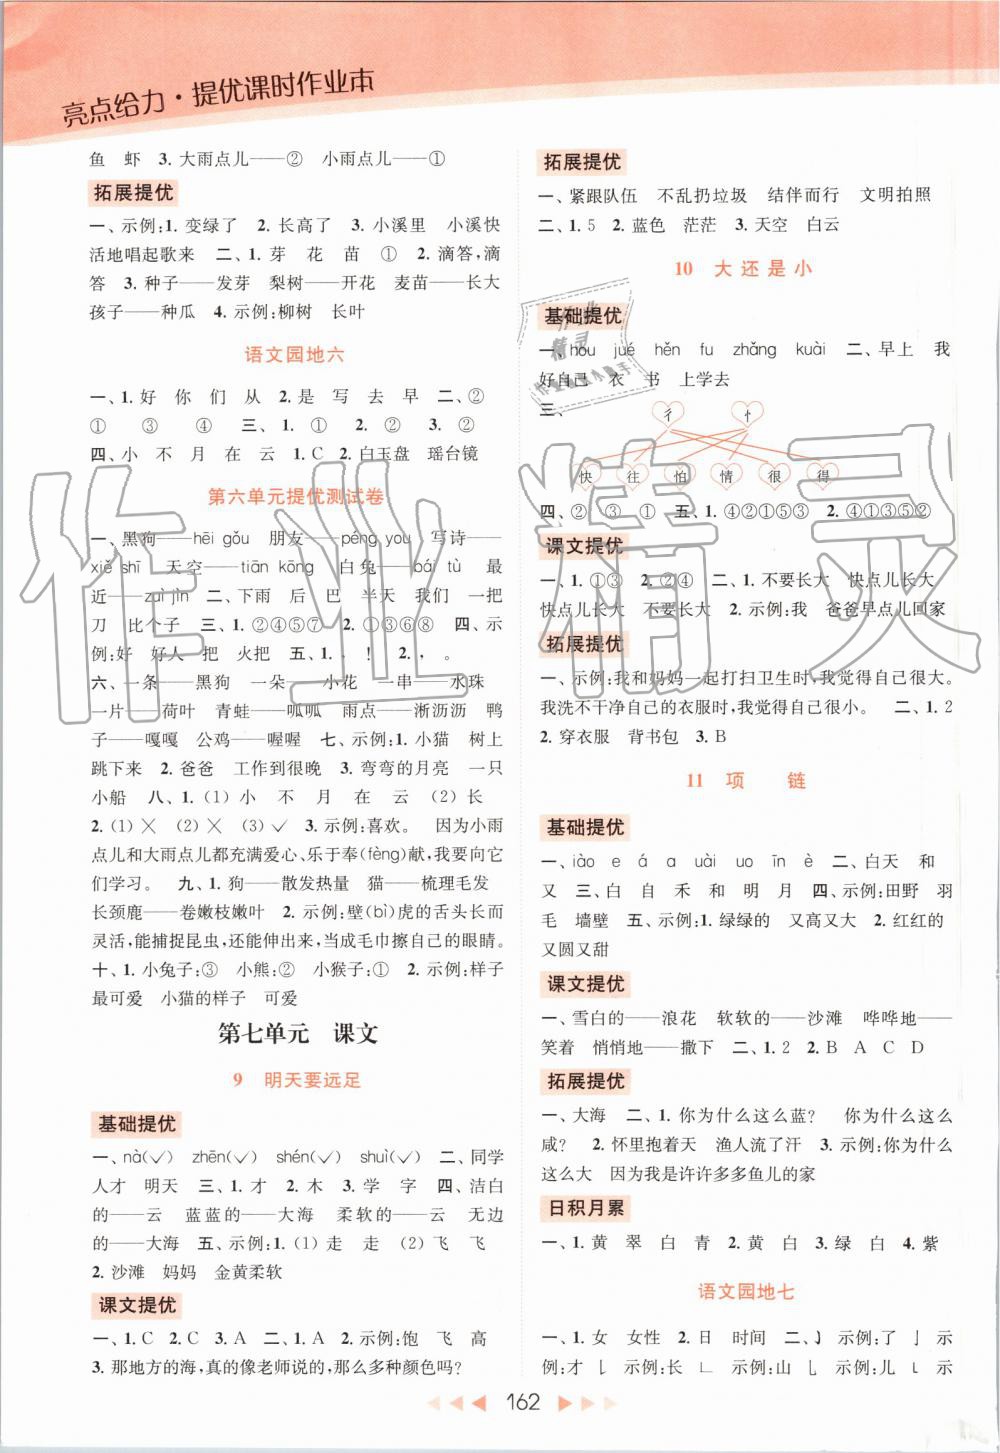 亮点给力·提优课时作业本
鱼 虾 3. 大雨点儿——② 小雨点儿——①
拓展提优
一、示例:1. 变绿了 2. 长高了 3. 小溪里 小溪快
活地唱起歌来 二、1. 芽 花 苗 ① 2. 滴答,滴
答 3. 种子——发芽 梨树——开花 麦苗——长大
孩子——种瓜 4. 示例:柳树 长叶
语文园地六
一、1. 好 你 们 从 2. 是 写 去 早 二、②
① ③ ④ 三、1. ① 2. ② 3. ②
四、小 不 月 在 云 1. C 2. 白玉盘 瑶台镜
第六单元提优测试卷
一、黑狗——hēi gǒu 朋友——péng you 写诗——
xiě shī 天空——tiān kōng 白兔——bái tù 最
近——zuì jìn 二、下雨 后 巴 半天 我们 一把
刀 比个子 三、1. ②④⑤⑦ 2. ①③⑥⑧ 四、示
例:好 好人 把 火把 五、1. , ! 2. , 。
六、一条——黑狗 一朵——小花 一串——水珠
一片——荷叶 青蛙——呱呱 雨点——淅沥沥 鸭
子——嘎嘎 公鸡——喔喔 七、示例:1. 小猫 树上
跳下来 2. 爸爸 工作到很晚 3. 弯弯的月亮 一只
小船 八、1. (1) 小 不 月 在 云 (2) 长
2. (1) × (2) × (3) ✓ 3. 示例:喜欢。 因为小雨
点儿和大雨点儿都充满爱心、乐于奉(fèng)献,我要向
它们学习。 九、1. 狗——散发热量 猫——梳理毛发
长颈鹿——卷嫩枝嫩叶 2. 示例:壁(bì)虎的舌头长而
灵活,能捕捉昆虫,还能伸出来,当成毛巾擦自己的眼睛。
十、1. 小兔子:③ 小熊:② 小猴子:① 2. 示例:样子
最可爱 小猫的样子 可爱
第七单元 课文
9 明天要远足
基础提优
一、nà(✓) zhēn(✓) shén(✓) shuì(✓) 二、同学
人才 明天 三、1. 才 2. 木 3. 学 字 四、洁白
的——云 蓝蓝的——大海 柔软的——云 无边
的——大海 五、示例:1. (1) 走 走 (2) 飞 飞
2. 沙滩 妈妈 金黄柔软
课文提优
一、1. C 2. C 3. A 二、1. A 2. 示例:饱 飞 高
3. 那地方的海,真的像老师说的,那么多种颜色吗?
拓展提优
一、紧跟队伍 不乱扔垃圾 结伴而行 文明拍照
二、1. 5 2. 蓝色 茫茫 3. 天空 白云
10 大还是小
基础提优
一、hòu jué hěn fu zhǎng kuài 二、早上 我
好自己 衣 书 上学去
三、 彳 忄
快 往 怕 情 很 得
四、② ③ ① 五、1. ④②①⑤③ 2. ④①③⑤②
课文提优
一、1. ①③ 2. ②④ 二、1. 不要长大 快点儿长大
快点儿长大 不要长大 2. 示例:我 爸爸早点儿回家
拓展提优
一、示例:我和妈妈一起打扫卫生时,我觉得自己很大。
我洗不干净自己的衣服时,我觉得自己很小。 二、1. 2
2. 穿衣服 背书包 3. B
11 项 链
基础提优
一、iào e á a uài uo īn è 二、白天 和
又 三、白 自 禾 和 明 月 四、示例:田野 羽
毛 墙壁 五、示例:1. 绿绿的 又高又大 2. 红红的
又圆又甜
课文提优
一、雪白的——浪花 软软的——沙滩 哗哗地——
笑着 悄悄地——撒下 二、1. 2 2. B A C D
拓展提优
一、大海 二、1. 你为什么这么蓝? 你为什么这么
咸? 2. 怀里抱着天 渔人流了汗 3. 示例:你为什么
这么大 因为我是许许多多鱼儿的家
日积月累
一、1. 黄 翠 白 青 2. 黄 白 3. 绿 白 4. 紫
语文园地七
一、1. 女 女性 2. 日 时间 二、㇆ 示例:了 亅 示
例:才 ㇄ 示例:长 ㄴ 示例:山 ㇂ 示例:儿 乚 示
162
作业精灵